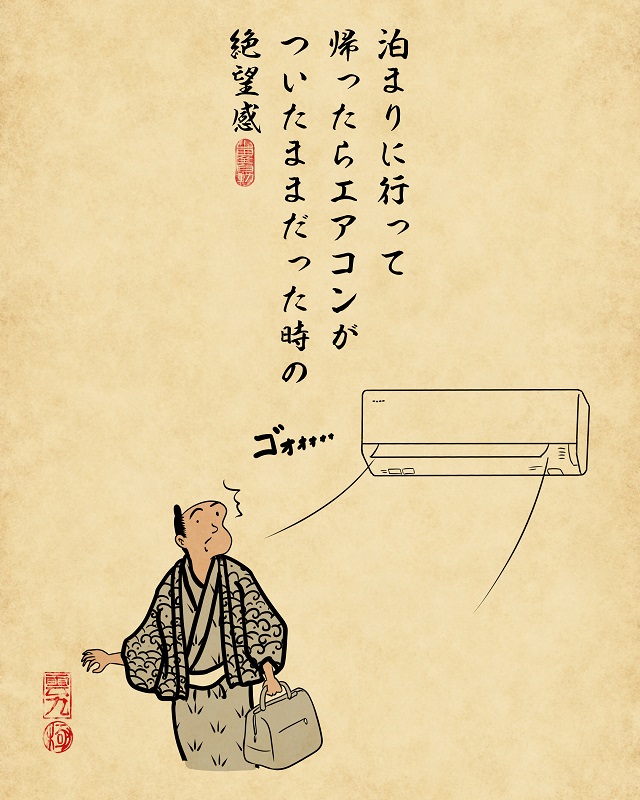 泊まりに行って
帰ったらエアコンが
ついたままだった時の
絶望感
ゴォォォォ